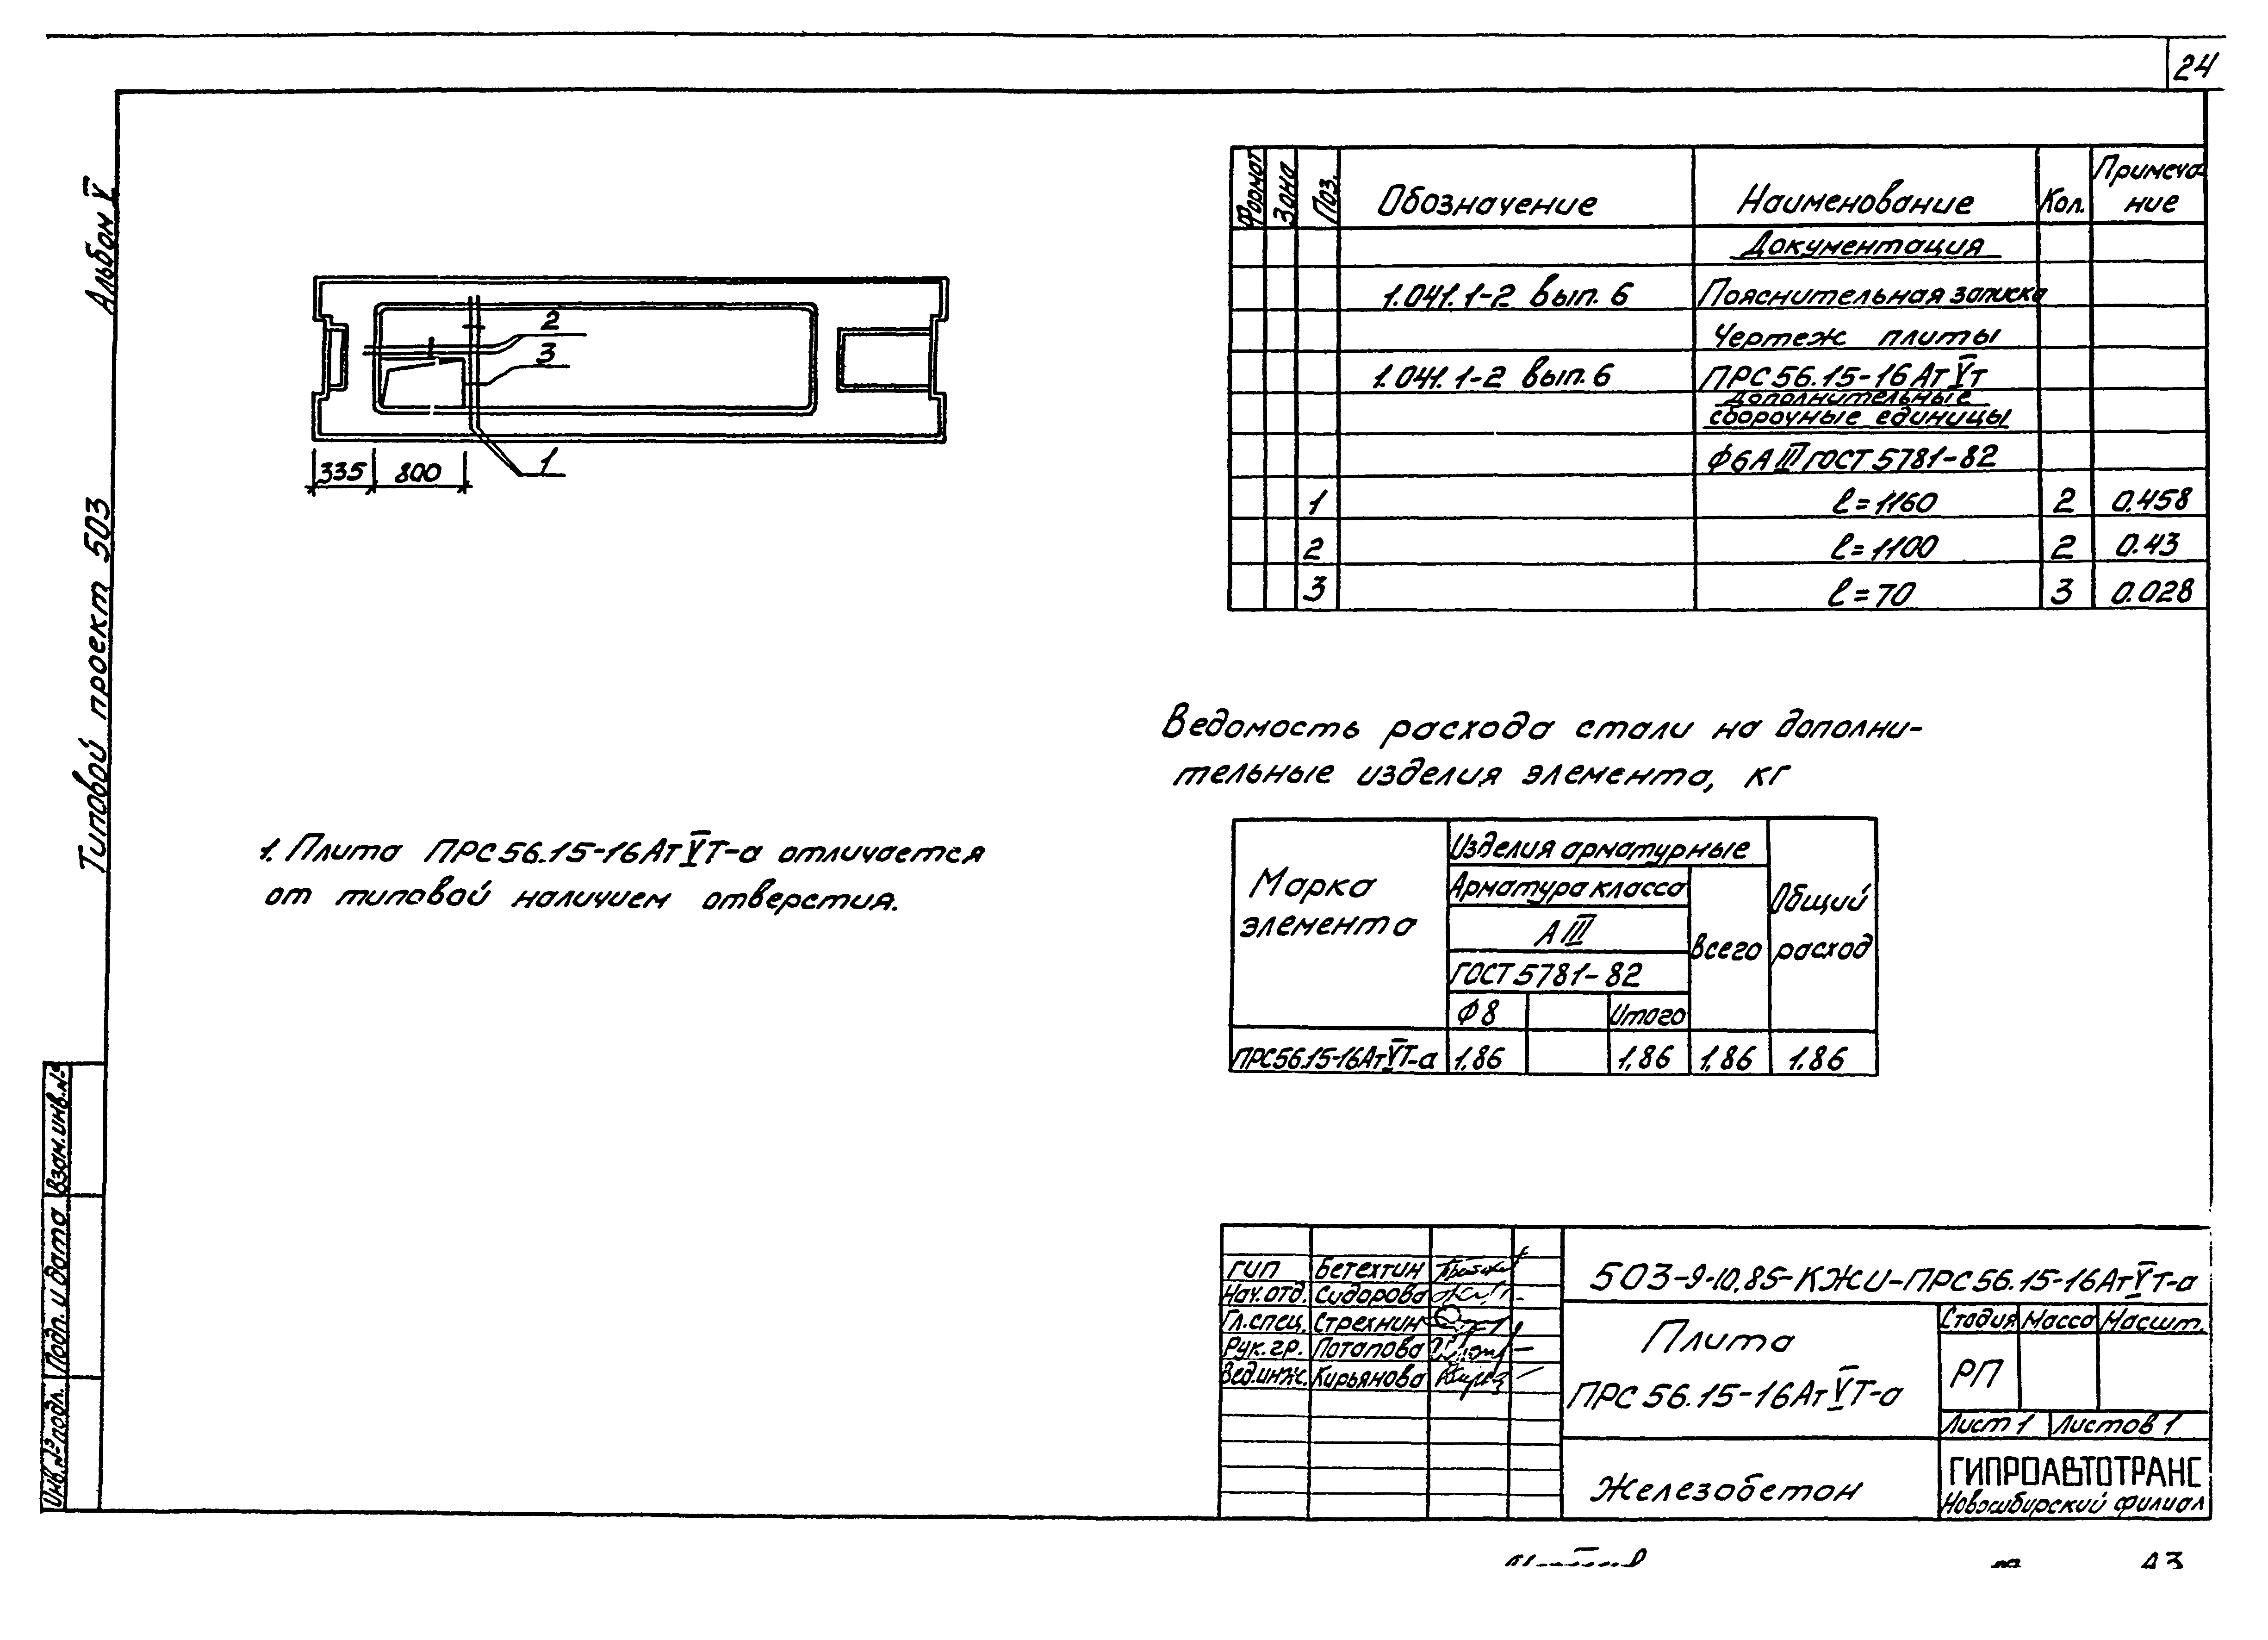 24
Альбом V
Типовой проект 503
Формат Зона Поз. Обозначение Наименование Кол. Примеча-
ние
Документация
1.041.1-2 вып. 6 Пояснительная записка
Чертеж плиты
1.041.1-2 вып. 6 ПРС56.15-16АтVт
Дополнительные
сборочные единицы
Ф6АIII ГОСТ 5781-82
1 ℓ=1160 2 0.458
2 ℓ=1100 2 0.43
3 ℓ=70 3 0.028
2
3
1
335 800
Ведомость расхода стали на дополни-
тельные изделия элемента, кг
1. Плита ПРС56.15-16АтVТ-а отличается
от типовой наличием отверстия.
Марка
элемента
Изделия арматурные
Арматура класса
АIII
ГОСТ 5781-82
Ф8 Итого
Всего
Общий
расход
ПРС56.15-16АтVТ-а 1,86 1,86 1,86 1.86
Взам.инв.№
Подп. и дата
Инв.№ подл.
ГИП Бетехтин
Нач.отд. Сидорова
Гл.спец. Стрехнин
Рук.гр. Потапова
Вед.инж. Кирьянова
503-9-10.85-КЖИ-ПРС56.15-16АтVТ-а
Плита
ПРС 56.15-16АтVТ-а
Стадия Масса Масшт.
РП
Лист 1 Листов 1
Железобетон
ГИПРОАВТОТРАНС
Новосибирский филиал